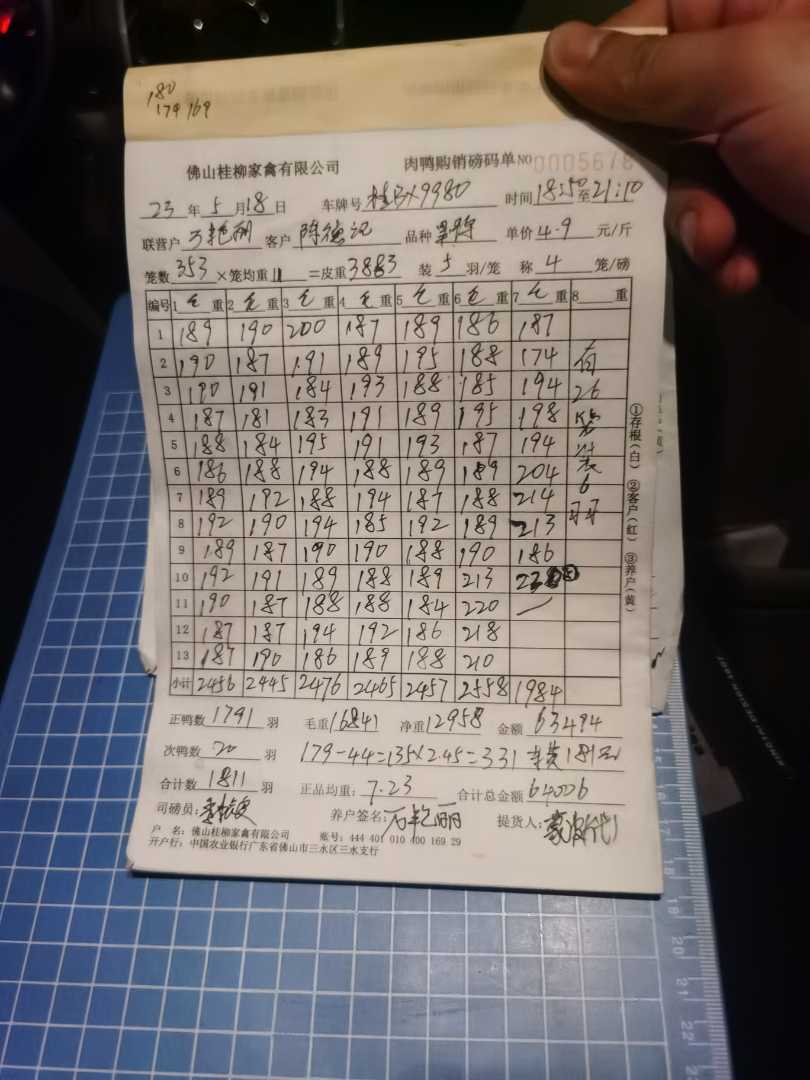 180
179 169
佛山桂柳家禽有限公司 肉鸭购销磅码单 NO 0005678
23 年 5 月 18 日 车牌号 桂 9980 时间 18:50 至 21:10
联营户 客户 陈德记 品种 单价 4.9 元/斤
笼数 353 ×笼均重 11 =皮重 3883 装 5 羽/笼 称 4 笼/磅
编号 1 毛 重 2 毛 重 3 毛 重 4 毛 重 5 毛 重 6 毛 重 7 毛 重 8 重
1 189 190 200 187 189 186 187
2 190 187 191 189 195 188 174 有
3 190 191 184 193 188 185 194 26
4 187 181 183 191 189 195 198 笼
5 188 184 195 191 193 187 194 装
6 186 188 194 188 189 189 204 6
7 189 192 188 194 187 188 214 羽
8 192 190 194 185 192 189 213
9 189 187 190 190 188 190 186
10 192 191 189 188 189 213
11 190 187 188 188 184 220 —
12 187 187 194 192 186 218
13 187 190 186 189 188 210
小计 2456 2445 2476 2465 2457 2558 1984
①存根(白) ②客户(红) ③养户(黄)
正鸭数 1791 羽 毛重 16841 净重 12958 金额 63494
次鸭数 20 羽 179-44=135×2.45=331 181元
合计数 1811 羽 正品均重: 7.23 合计总金额 64006
司磅员: 养户签名: 提货人:
户 名: 佛山桂柳家禽有限公司 账号: 444 401 010 400 169 29
开户行: 中国农业银行广东省佛山市三水区三水支行